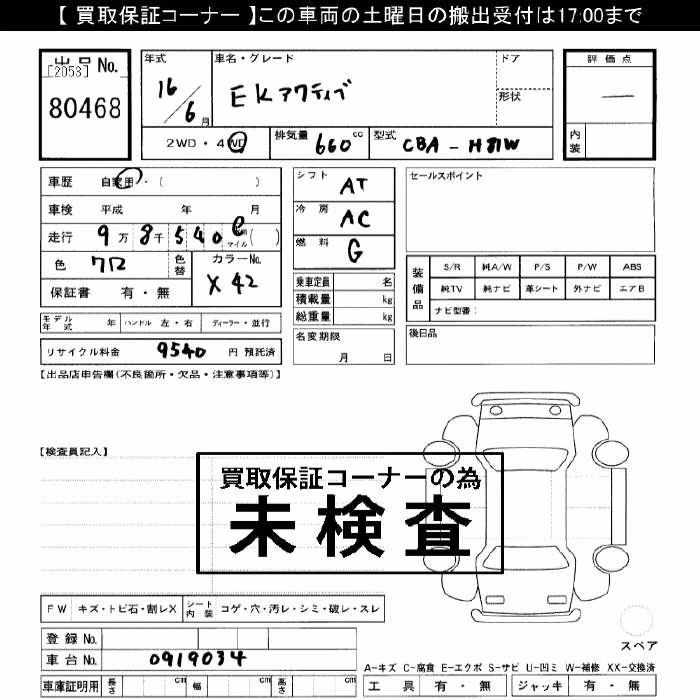 【 買取保証コーナー 】この車両の土曜日の搬出受付は17:00まで
出品 No.
[2053]
80468
年式
16/6月
車名・グレード
EKアクティブ
ドア
形状
2WD・4WD
排気量 660 cc
型式 CBA-H81W
評価点
—
内装
車歴 自家用・( )
車検 平成 年 月
走行 9万8千540 マイル( )
色 クロ
色替
カラーNo.
X42
保証書 有・無
シフト AT
冷房 AC
燃料 G
乗車定員 名
積載量 kg
総重量 kg
名変期限
月 日
セールスポイント
装備品
S/R 純A/W P/S P/W ABS
純TV 純ナビ 革シート 外ナビ エアB
ナビ型番:
後日品
モデル年式 年 ハンドル 左・右 ディーラー・並行
リサイクル料金 9540 円 預託済
【出品店申告欄(不良箇所・欠品・注意事項等)】
【検査員記入】
買取保証コーナーの為
未検査
FW キズ・トビ石・割レX シート内装 コゲ・穴・汚レ・シミ・破レ・スレ
登録 No.
車台 No. 0919034
車庫証明用 長さ cm 幅 cm 高さ cm
スペア
A-キズ C-腐食 E-エクボ S-サビ U-凹ミ W-補修 XX-交換済
工具 有・無 ジャッキ 有・無